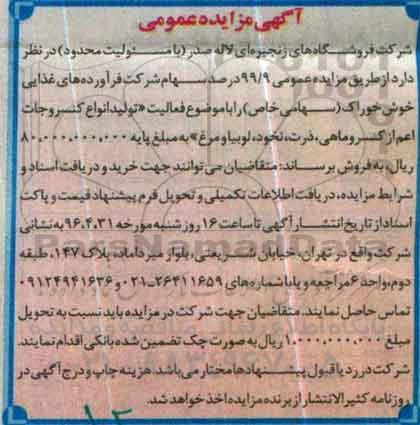 آگهی مزایده عمومی
شرکت فروشگاه‌های زنجیره‌ای لاله صدر (با مسئولیت محدود) در نظر
دارد از طریق مزایده عمومی ۹۹/۹ درصد سهام شرکت فرآورده‌های غذایی
خوش خوراک (سهامی خاص) را با موضوع فعالیت «تولید انواع کنسروجات
اعم از کنسرو ماهی، ذرت، نخود، لوبیا و مرغ» به مبلغ پایه ۸۰،۰۰۰،۰۰۰،۰۰۰
ریال، به فروش برساند؛ متقاضیان می‌توانند جهت خرید و دریافت اسناد و
شرایط مزایده، دریافت اطلاعات تکمیلی و تحویل فرم پیشنهاد قیمت و پاکت
اسناد از تاریخ انتشار آگهی تا ساعت ۱۶ روز شنبه مورخه ۹۶،۴،۳۱ به نشانی
شرکت واقع در تهران، خیابان شریعتی، بلوار میرداماد، پلاک ۱۴۷، طبقه
دوم، واحد ۶ مراجعه و یا با شماره‌های ۲۶۴۱۱۶۵۹-۰۲۱ و ۰۹۱۲۴۹۴۱۶۳۶
تماس حاصل نمایند. متقاضیان جهت شرکت در مزایده باید نسبت به تحویل
مبلغ ۱،۰۰۰،۰۰۰،۰۰۰ ریال به صورت چک تضمین شده بانکی اقدام نمایند.
شرکت در رد یا قبول پیشنهادها مختار می‌باشد. هزینه چاپ و درج آگهی در
روزنامه کثیرالانتشار از برنده مزایده اخذ خواهد شد.
ParsNamadData